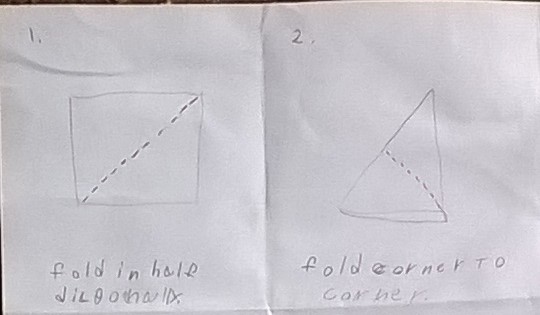 1.
2.
fold in half
diagonally.
fold corner TO
corner.